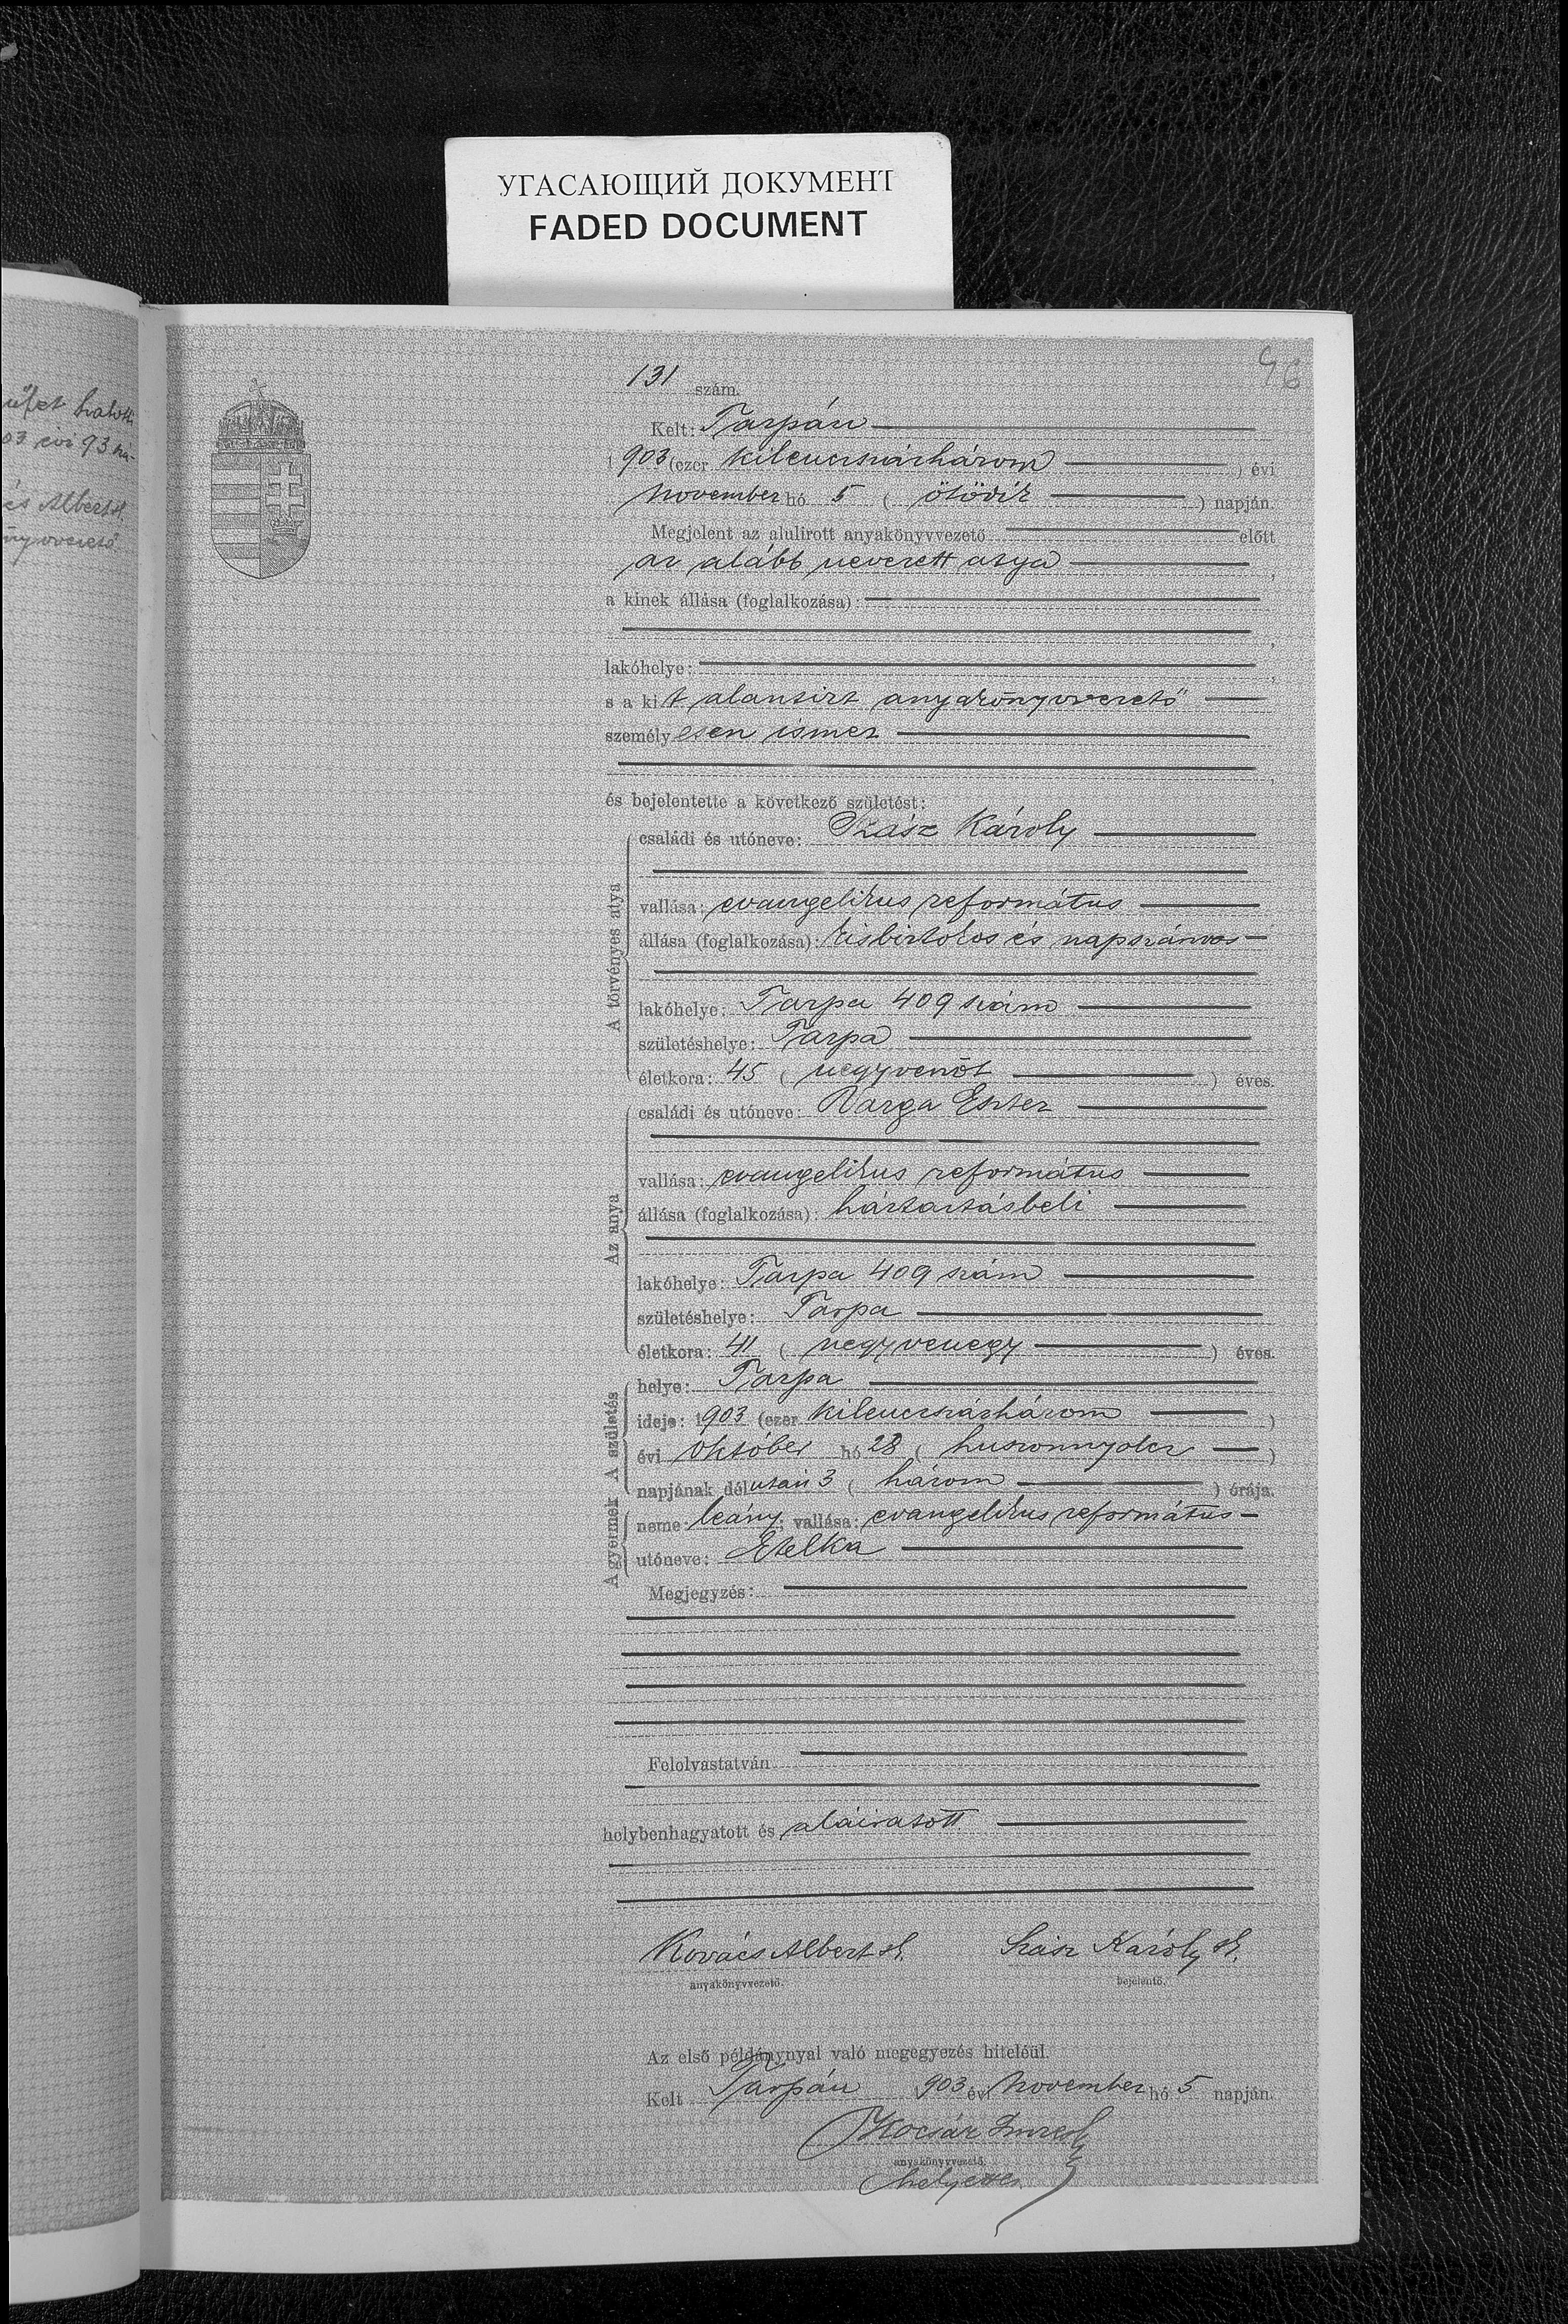 УГАСАЮЩИЙ ДОКУМЕНТ
FADED DOCUMENT
96
03 évi 93
és Albert sk.
131 szám.
Kelt: Tarpán
1903 (ezer kilenczszázhárom) évi
november hó 5 (ötödik) napján.
Megjelent az alulirott anyakönyvvezető előtt
az alább nevezett atya,
a kinek állása (foglalkozása):
lakóhelye:
s a kit alantirt anyakönyvvezető
személyesen ismer
és bejelentette a következő születést:
A törvényes atya
családi és utóneve: Szász Károly
vallása: evangelikus református
állása (foglalkozása): kisbirtokos és napszámos
lakóhelye: Tarpa 409 szám
születéshelye: Tarpa
életkora: 45 (negyvenöt) éves.
Az anya
családi és utóneve: Varga Eszter
vallása: evangelikus református
állása (foglalkozása): háztartásbeli
lakóhelye: Tarpa 409 szám
születéshelye: Tarpa
életkora: 41 (negyvenegy) éves.
A születés
helye: Tarpa
ideje: 1903 (ezer kilenczszázhárom)
évi október hó 28 (huszonnyolcz)
napjának délután 3 (három) órája.
A gyermek
neme: leány; vallása: evangelikus református
utóneve: Etelka
Megjegyzés:
Felolvastatván
helybenhagyatott és aláiratott.
Kovács Albert sk. Szász Károly sk.
anyakönyvvezető. bejelentő.
Az első példánynyal való megegyezés hiteléül.
Kelt Tarpán 903 évi november hó 5 napján.
Kocsár Imre
anyakönyvvezető.
helyettes